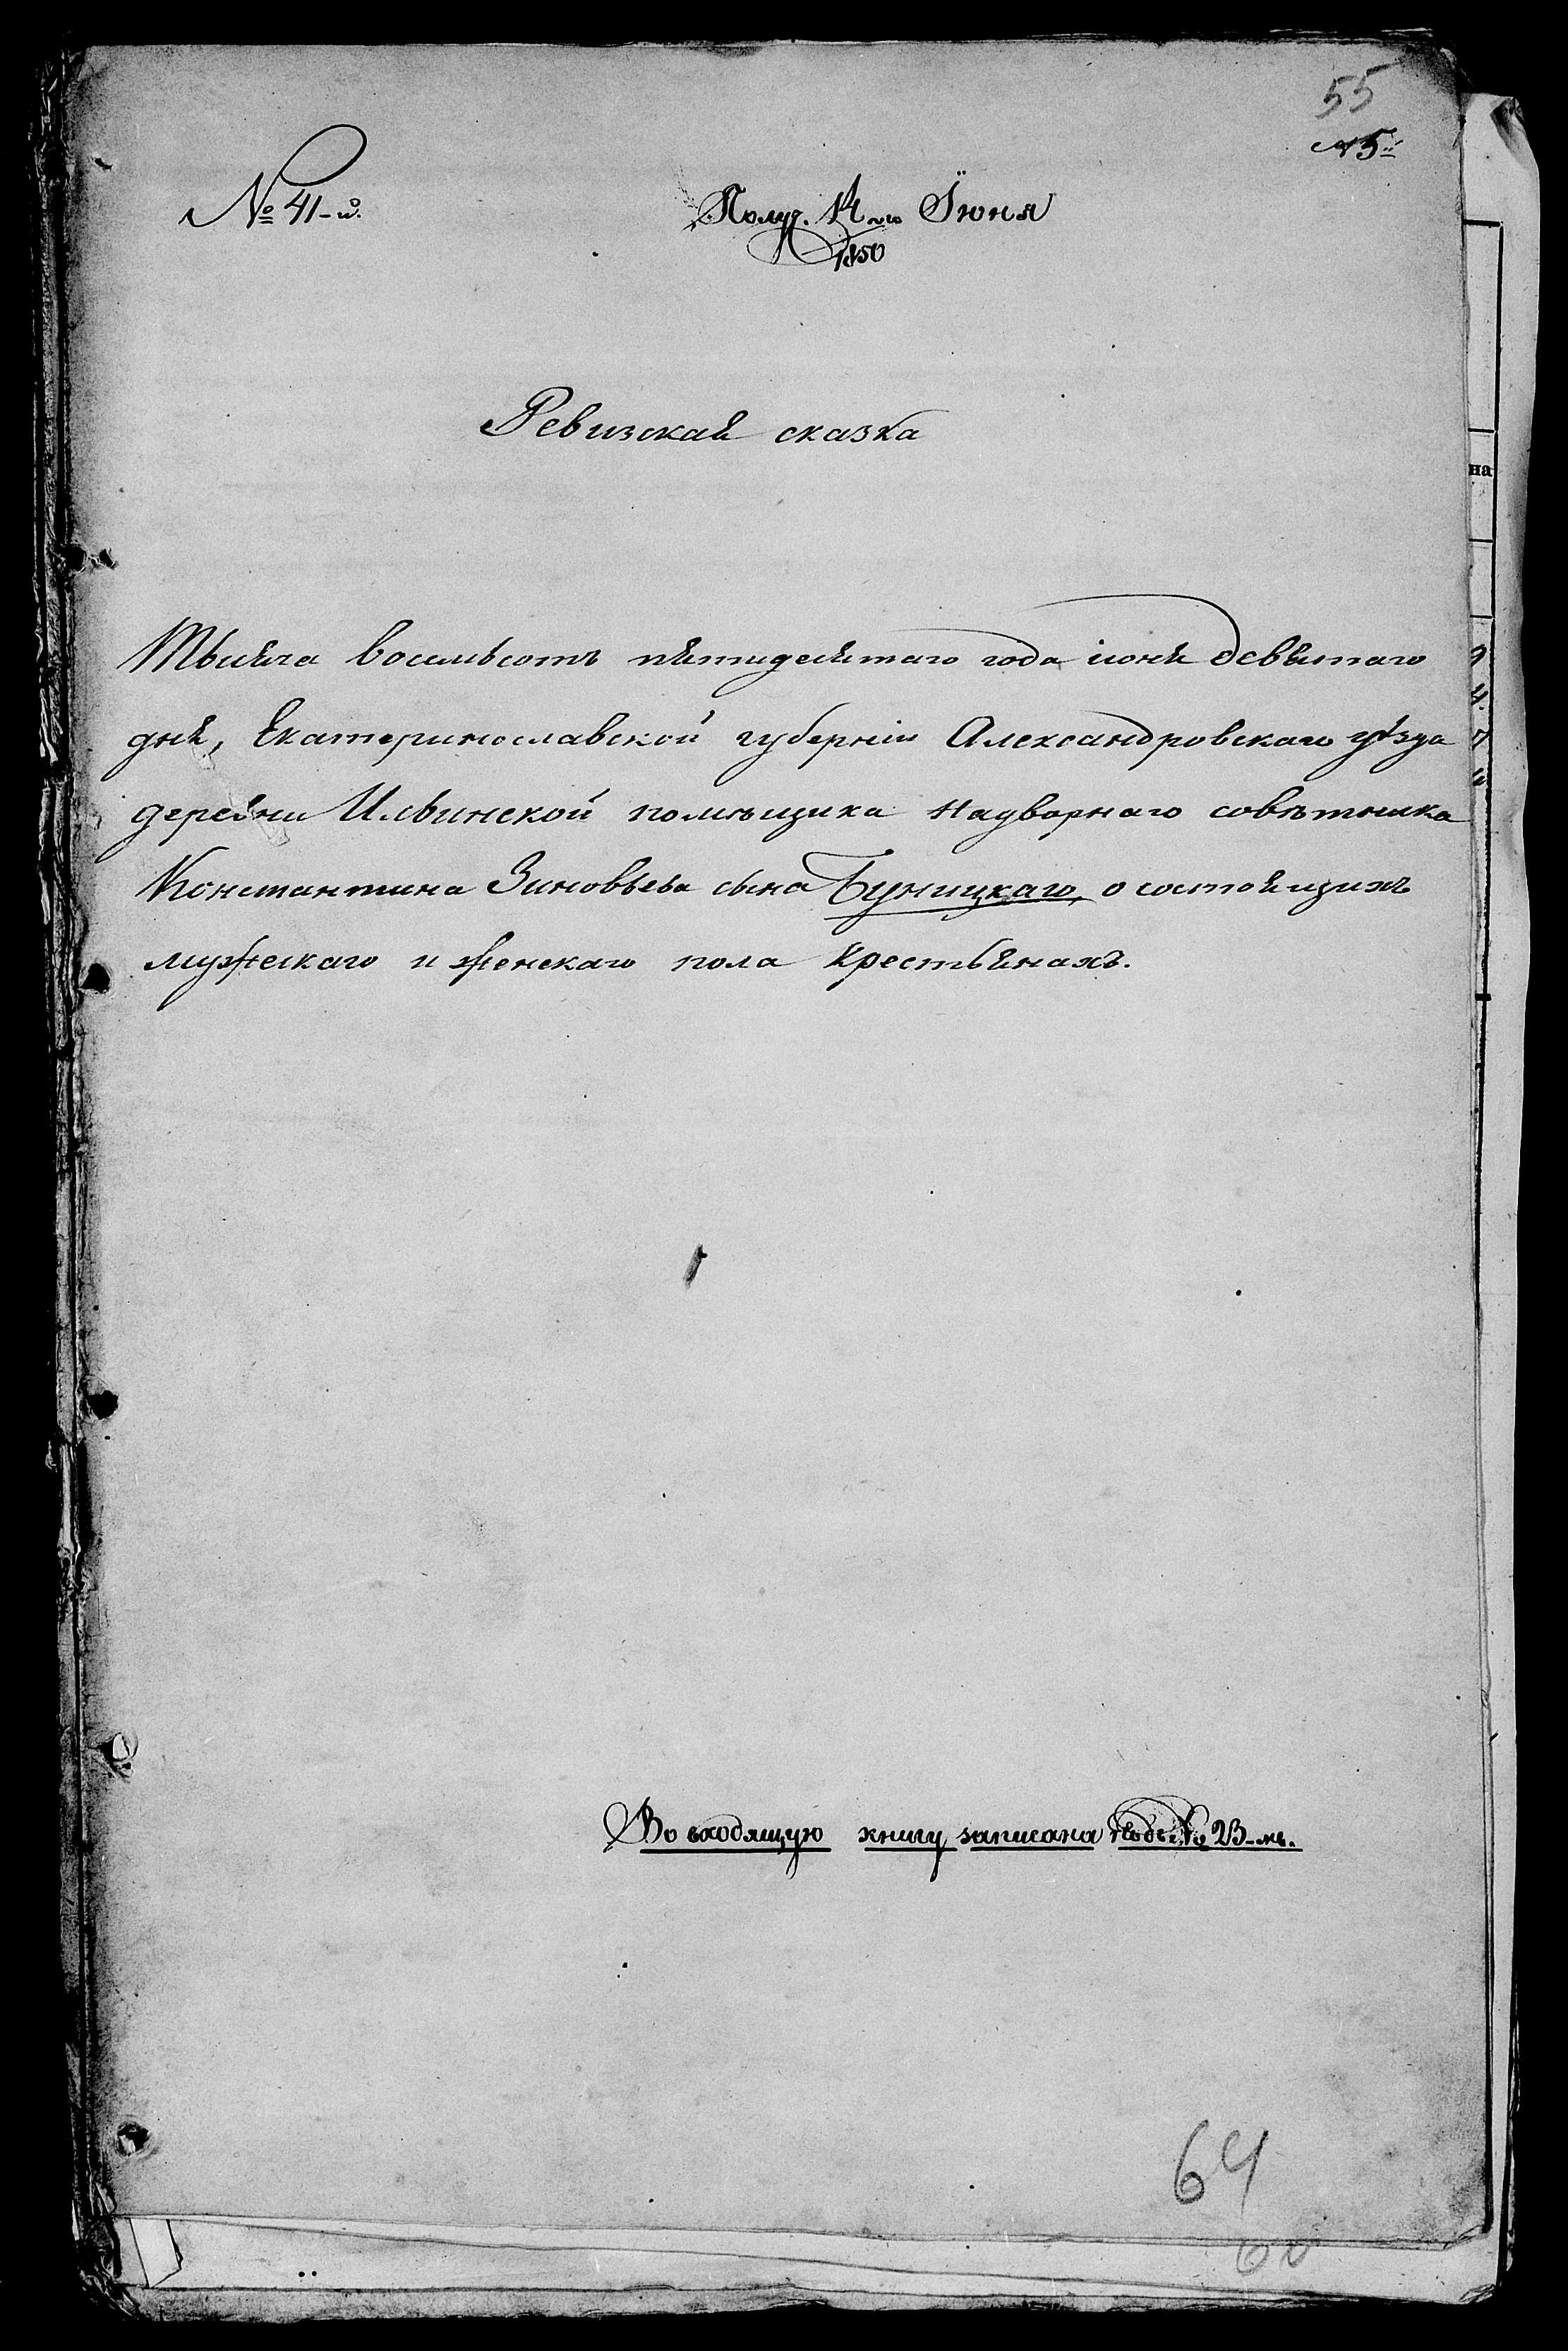 55
№ 41-й.
Получ. 14-го Іюня
1850
Ревизская сказка
Тысяча восемьсотъ пятидесятаго года іюня девятаго
дня, Екатеринославской губерніи Александровскаго уѣзда
деревни Ильинской помѣщика надворнаго совѣтника
Константина Зиновьева сына Буницкаго, о состоящихъ
мужескаго и женскаго пола крестьянахъ.
на
Во входящую книгу записана подъ № 23-мъ.
64